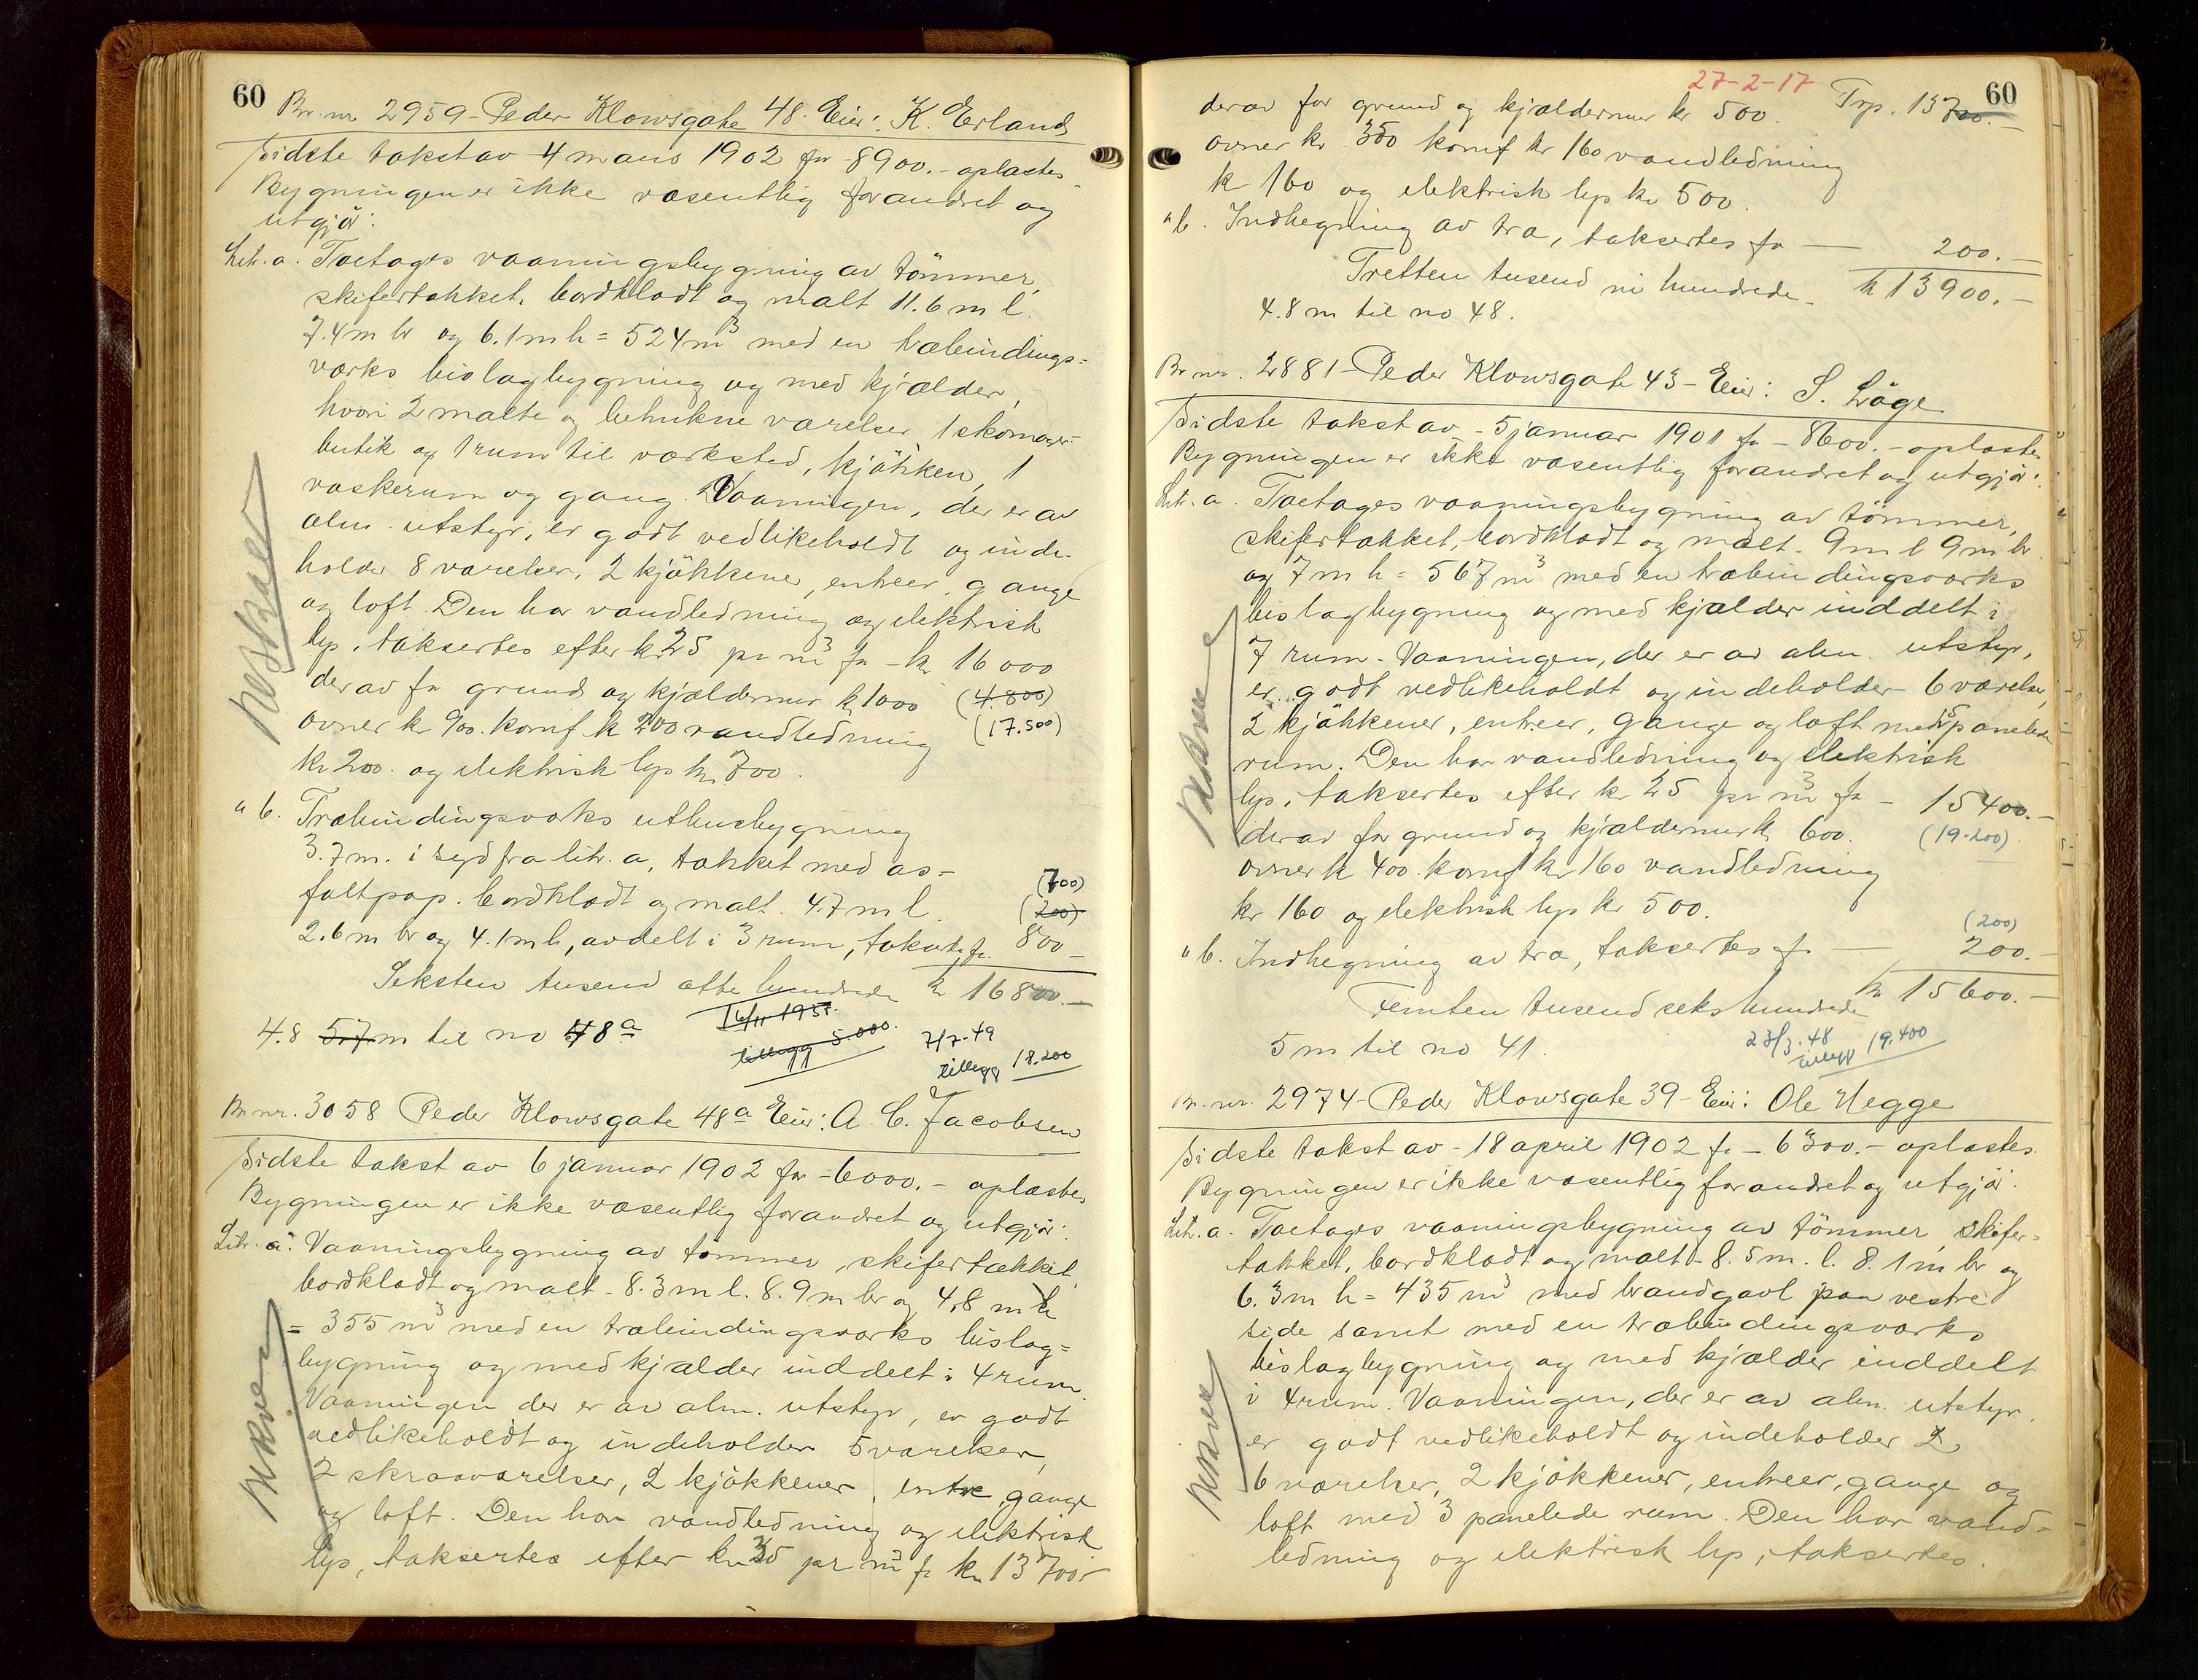 60
Br. nr 2959 - Peder Klowsgate 48. Eier: K. Erland
Sidste takst av 4 mars 1902 for 8900.- oplæstes
Bygningen er ikke væsentlig forandret og
utgjør:
Litr. a. Toetages vaaningsbygning av tömmer,
skifertækket, bordklædt og malt 11.6 m l.
7.4 m br og 6.1 m h = 524 m³ med en træbindings=
verks bislagbygning og med kjælder,
hvori 2 malte og betrukne værelser, 1 skomager=
butik og 1 rum til værksted, kjökken, 1
vaskerum og gang. Vaaningen, der er av
alm. utstyr, er godt vedlikeholdt og inde-
holder 8 værelser, 2 kjökkener, entreer, gange
og loft. Den har vandledning og elektrisk
lys, taksertes efter kr 25 pr m³ for - kr 16000
derav for grund og kjældermur kr 1000 (4.800)
ovner kr 900. komf kr 200 vandledning (17.500)
kr 200. og elektrisk lys kr 700.
" b. Træbindingsverks uthusbygning
3.7 m. i syd fra litr. a, tækket med as=
faltpap. bordklædt og malt. 4.7 m l. (700) (200)
2.6 m br og 4.1 m h, avdelt i 3 rum, takseres for 800 -
Seksten tusend otte hundrede kr 16800.-
4.8 5.7 m til no 48a
16/11 1935. tillegg 5.000.
7/7-49 tillegg 18.200
Br nr. 3058 Peder Klowsgate 48a Eier: A. C. Jacobsen
Sidste takst av 6 januar 1902 for - 6000.- oplæstes
Bygningen er ikke væsentlig forandret og utgjør:
Litr. a. Vaaningsbygning av tømmer, skifertækket,
bordklædt og malt - 8.3 m l. 8.9 m br og 4,8 m h
= 355 m³ med en træbindingsværks bislag=
bygning og med kjælder inddelt i 4 rum.
Vaaningen der er av alm. utstyr, er godt
vedlikeholdt og indeholder 5 værelser,
2 skraaværelser, 2 kjökkener, entre, gange
og loft. Den har vandledning og elektrisk
lys, taksertes efter kr 35 pr m³ fr kr 13700.-
27-2-17
60
derav for grund og kjældermur kr 500. Trp. 13700.-
ovner kr 350 komf kr 160 vandledning
kr 160 og elektrisk lys kr 500.
" b. Indhegning av træ, taksertes for — 200.-
Tretten tusend ni hundrede - kr 13900.-
4.8 m til no 48.
Br nr. 2881 - Peder Klowsgate 43 - Eier: S. Löge
Sidste takst av - 5 januar 1901 for - 8600.- oplæstes
Bygningen er ikke væsentlig forandret og utgjør:
Litr. a. Toetages vaaningsbygning av tömmer,
skifertækket, bordklædt og malt. 9 m l 9 m br.
og 7 m h = 567 m³ med en træbindingsværks
bislagbygning og med kjælder inddelt i
7 rum. Vaaningen, der er av alm. utstyr,
er godt vedlikeholdt og indeholder 6 værelser,
2 kjökkener, entreer, gange og loft med 5 panelede
rum. Den har vandledning og elektrisk
lys, taksertes efter kr 25 pr m³ for - 15400.-
derav for grund og kjældermur kr 600. (19.200)
ovner kr 400. komf kr 160 vandledning
kr 160 og elektrisk lys kr 500. (200)
" b. Indhegning av træ, taksertes for — 200.-
Femten tusend seks hundrede kr 15600.-
5 m til no 41.
23/3.48 tillegg 19.400
Br. nr. 2974 - Peder Klowsgate 39 - Eier: Ole Hegge
Sidste takst av - 18 april 1902 for - 6300.- oplæstes.
Bygningen er ikke væsentlig forandret og utgjør:
Litr. a. Toetages vaaningsbygning av tömmer, skifer=
tækket, bordklædt og malt - 8.5 m. l. 8.1 m br og
6.3 m h = 435 m³ med brandgavl paa vestre
side samt med en træbindingsværks
bislagbygning og med kjælder inddelt
i 4 rum. Vaaningen, der er av alm. utstyr,
er godt vedlikeholdt og indeholder 2
6 værelser, 2 kjökkener, entreer, gange og
loft med 3 panelede rum. Den har vand=
ledning og elektrisk lys, taksertes.